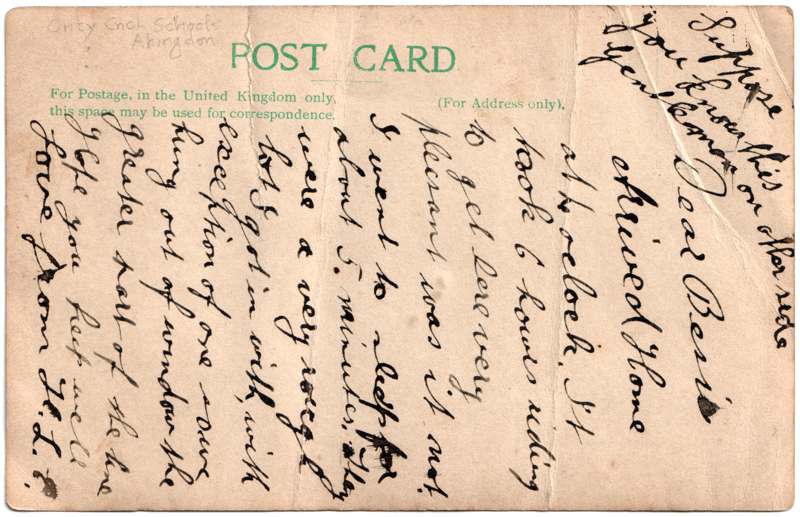 Schools
Abingdon
POST CARD
For Postage, in the United Kingdom only,
this space may be used for correspondence.
(For Address only).
Suppose
you know this
Gentleman on other side
Dear Bessie
Arrived Home
at o'clock. It
took 6 hours riding
to get here very
pleasant was it not
I went to sleep for
about 5. minutes. they
were a very rough
lot I got in with, with
exception of one I was
hung out of window the
greater part of the time
Hope you keep well
Love from H. L.